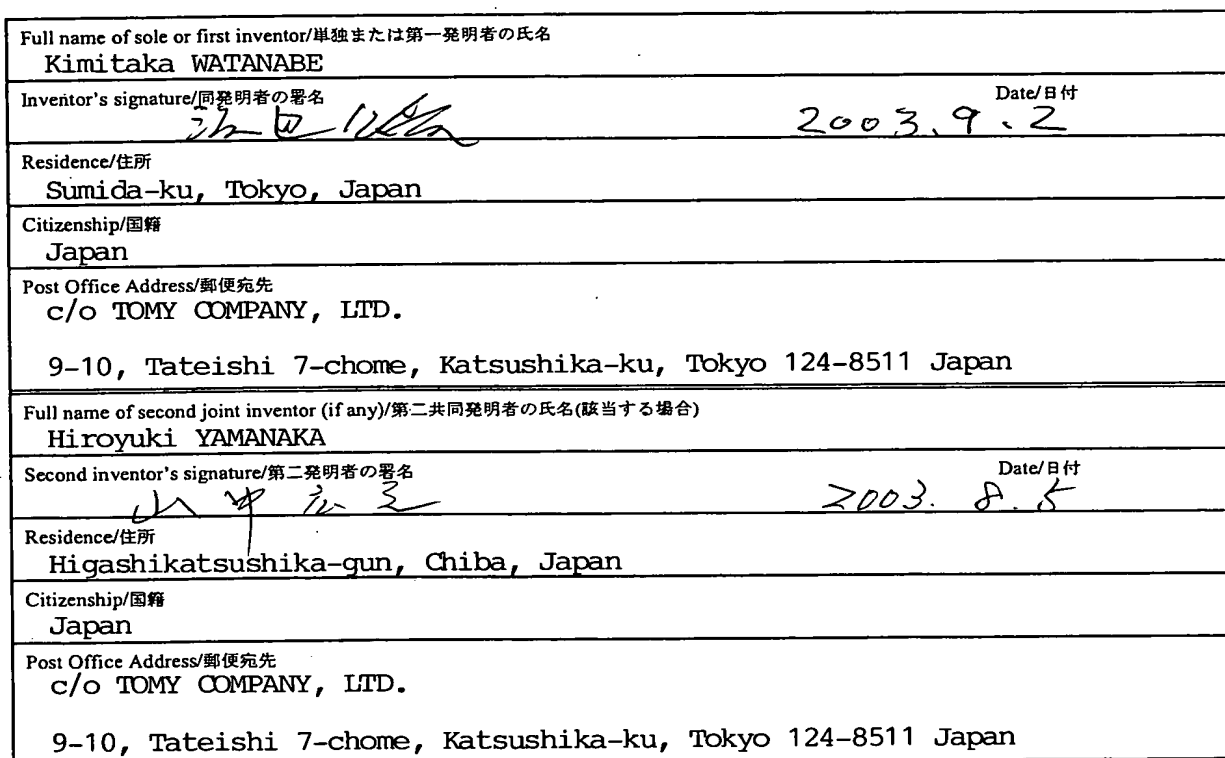 Full name of sole or first inventor/単独または第一発明者の氏名
Kimitaka WATANABE
Inventor's signature/同発明者の署名 Date/日付
2003.9.2
Residence/住所
Sumida-ku, Tokyo, Japan
Citizenship/国籍
Japan
Post Office Address/郵便宛先
c/o TOMY COMPANY, LTD.
9-10, Tateishi 7-chome, Katsushika-ku, Tokyo 124-8511 Japan
Full name of second joint inventor (if any)/第二共同発明者の氏名(該当する場合)
Hiroyuki YAMANAKA
Second inventor's signature/第二発明者の署名 Date/日付
山中 2003. 8. 5
Residence/住所
Higashikatsushika-gun, Chiba, Japan
Citizenship/国籍
Japan
Post Office Address/郵便宛先
c/o TOMY COMPANY, LTD.
9-10, Tateishi 7-chome, Katsushika-ku, Tokyo 124-8511 Japan